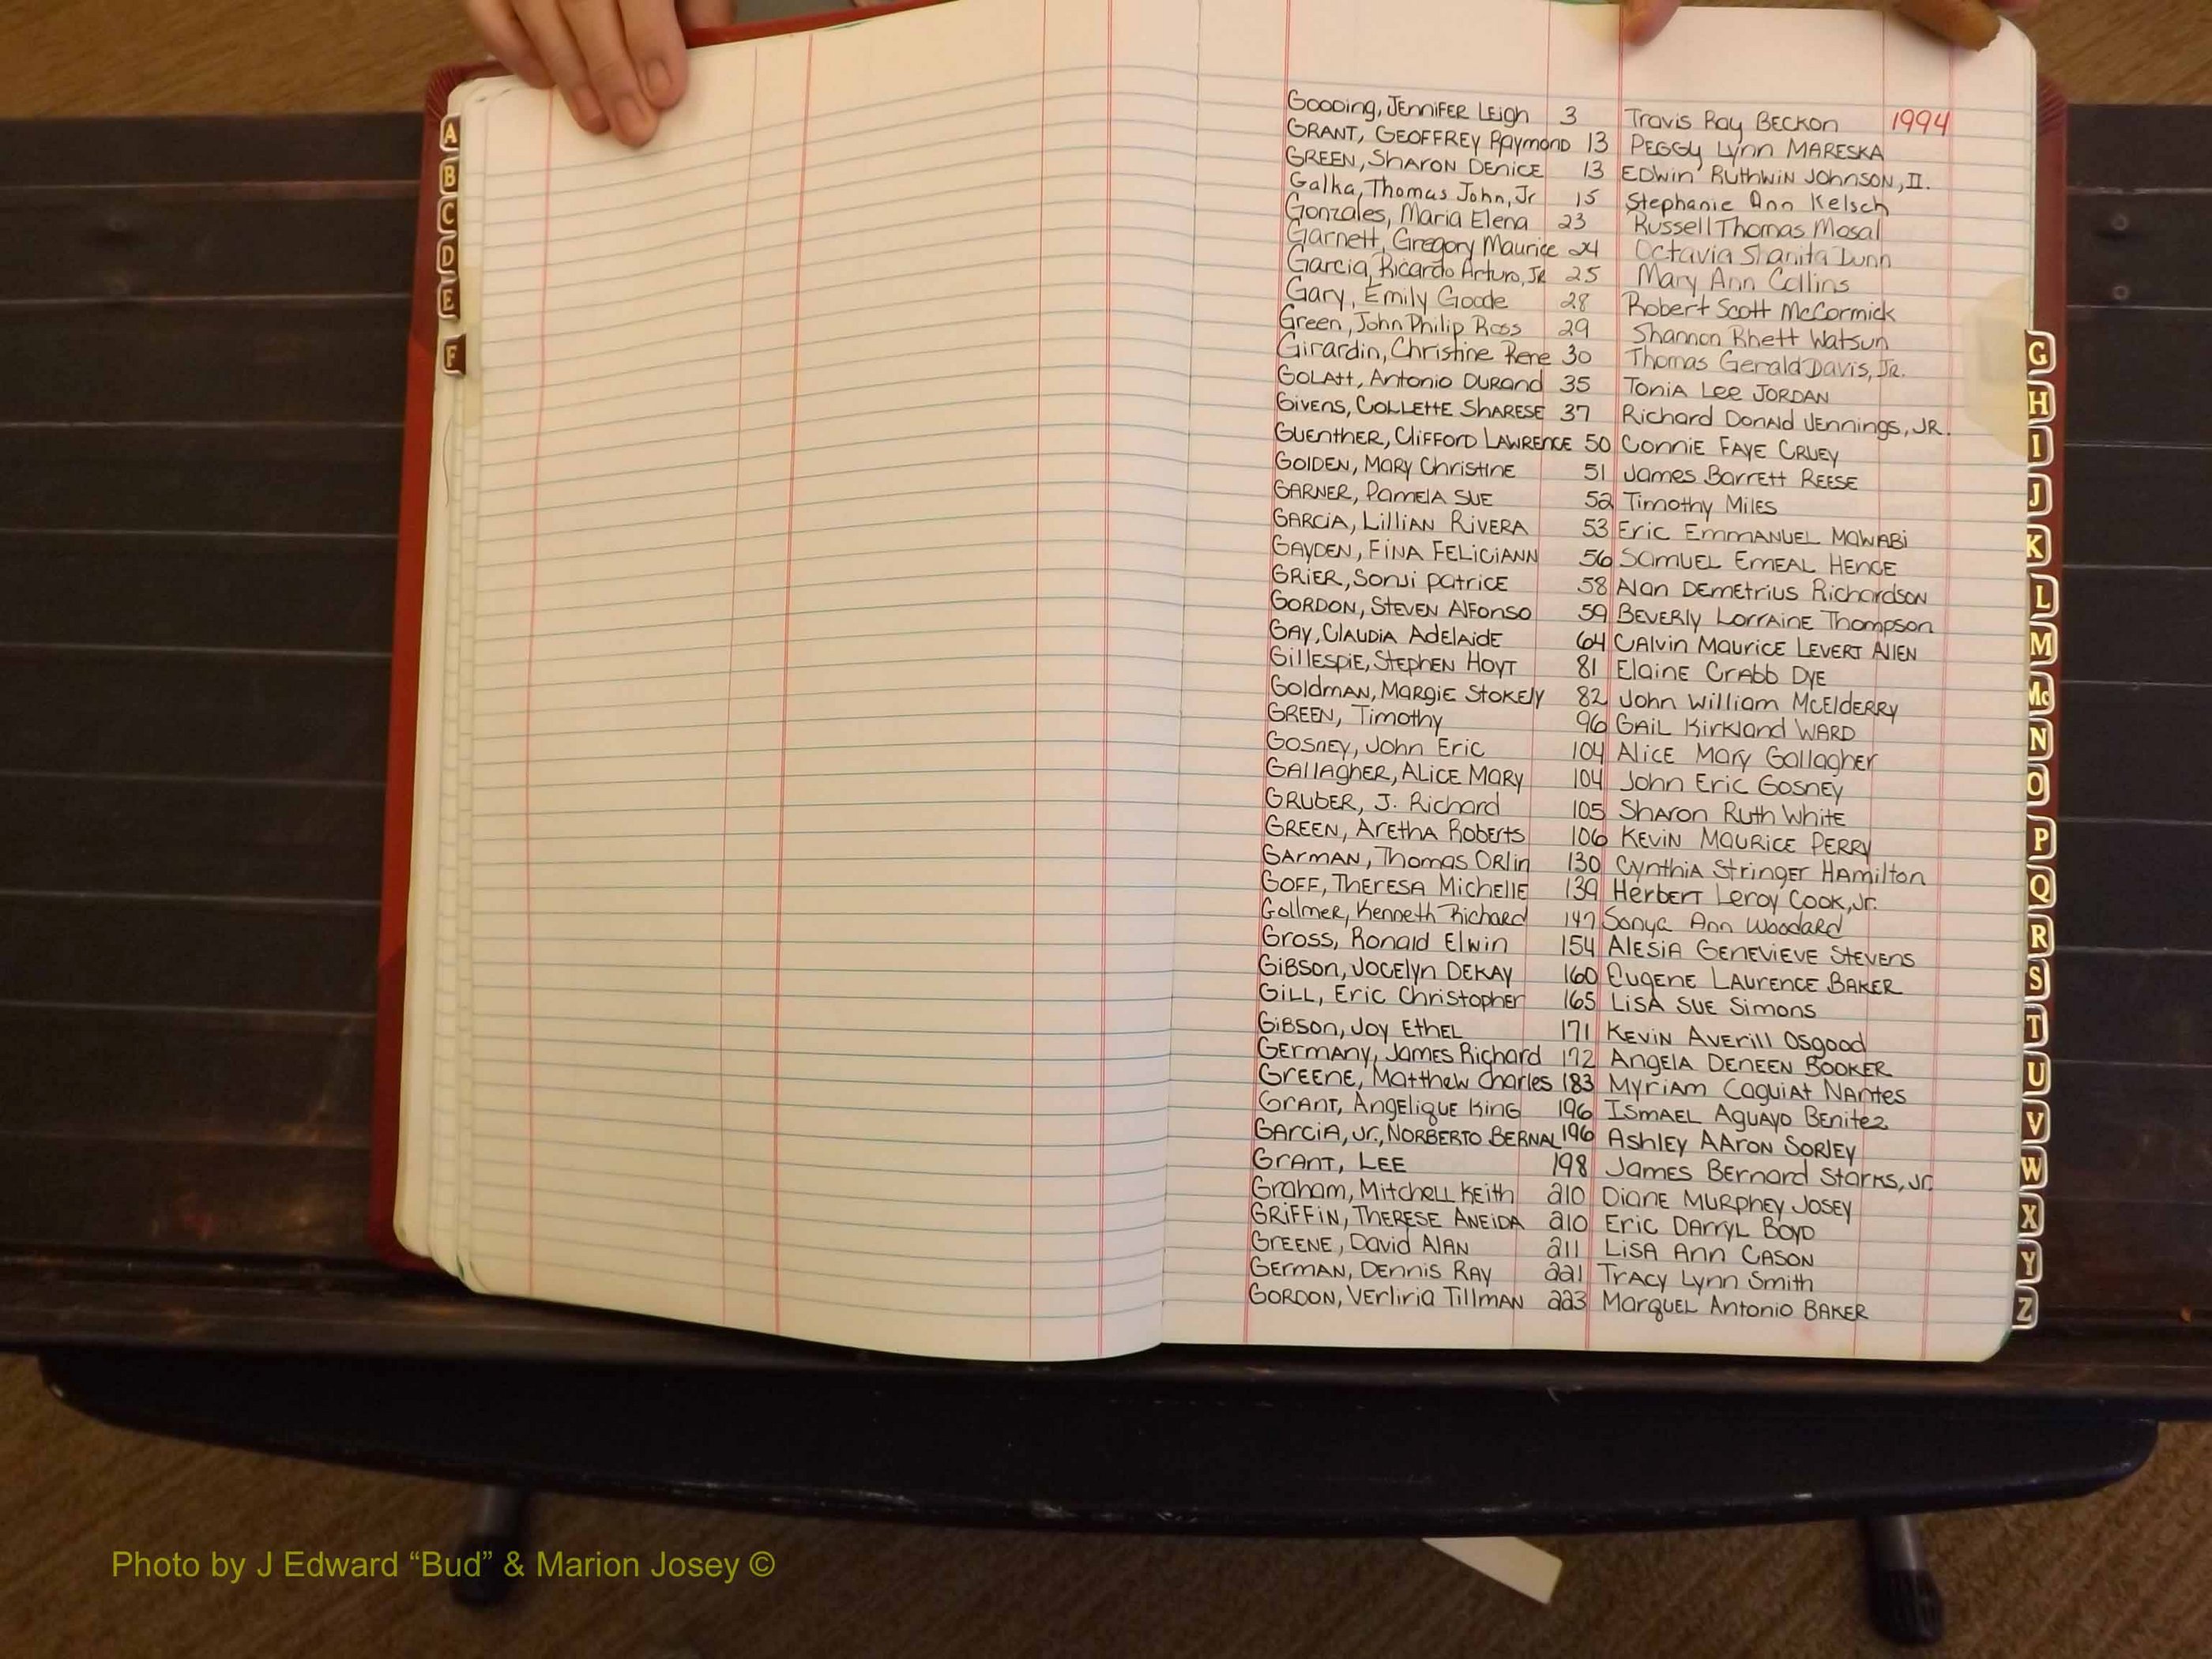 A
B
C
D
E
F
Gooding, Jennifer Leigh 3 Travis Ray Beckon 1994
GRANT, GEOFFREY Raymond 13 PEGGY Lynn MARESKA
GREEN, SHARON DENICE 13 EDWIN RUTHWIN JOHNSON, II.
Galka, Thomas John, Jr 15 Stephanie Ann Kelsch
Gonzales, Maria Elena 23 Russell Thomas Mosal
Garnett, Gregory Maurice 24 Octavia Shanita Dunn
Garcia, Ricardo Arturo, Jr. 25 Mary Ann Collins
Gary, Emily Goode 28 Robert Scott McCormick
Green, John Philip Ross 29 Shannon Rhett Watsun
Girardin, Christine Rene 30 Thomas Gerald Davis, Jr.
GOLAtt, Antonio DURand 35 TONIA Lee JORDAN
Givens, COLLETTE SHARESE 37 Richard DONAld JENNINGS, JR.
GUENTHER, CLIFFORD LAWRENCE 50 CONNIE FAYE CRUEY
GOLDEN, MARY Christine 51 James Barrett REESE
GARNER, PAMELA SUE 52 Timothy Miles
GARCIA, Lillian RIVERA 53 Eric EMMANUEL MAWABi
GAYDEN, FINA FELICIANN 56 SAMUEL EMEAL HENCE
GRIER, SONJI patrice 58 Alan DEMETRIUS Richardson
GORDON, STEVEN Alfonso 59 BEVERLY LORRAINE Thompson
GAY, CLAUDIA AdELAIdE 64 CALVIN MAURICE LEVERT ALLEN
Gillespie, STEPHEN HOYT 81 ELAINE CRABB DYE
GOLDMAN, MARGIE STOKELY 82 John William McELDERRY
GREEN, Timothy 96 GAIL Kirkland WARD
GOSNEY, John Eric 104 ALICE MARY Gallagher
GALLAGHER, ALICE MARY 104 John Eric GOSNEY
GRUBER, J. Richard 105 SHARON Ruth White
GREEN, ARETHA ROBERTS 106 KEVIN MAURICE PERRY
GARMAN, Thomas ORLIN 130 CYNTHIA STRINGER HAMILTON
GOFF, THERESA Michelle 139 HERBERT Leroy COOK, Jr.
Gollmer, Kenneth Richard 147 Sonya Ann Woodard
GROSS, RONALD Elwin 154 ALESIA GENEVIEVE STEVENS
GIBSON, JOCELYN DEKAY 160 EUGENE LAURENCE BAKER
GILL, Eric Christopher 165 LISA SUE Simons
GIBSON, JOY ETHEL 171 KEVIN AVERILL OSGOOD
GERMANY, James Richard 172 ANGELA DENEEN BOOKER
GREENE, Matthew Charles 183 MYRIAM CAGUIAT NANTES
GRANT, ANGELIQUE KING 196 ISMAEL AGUAYO BENITEZ
GARCIA, Jr., NORBERTO BERNAL 196 ASHLEY AARON SORLEY
GRANT, LEE 198 James BERNARD STARKS, Jr.
GRAHAM, MITCHELL KEITH 210 DIANE MURPHEY JOSEY
GRIFFIN, THERESE ANEIDA 210 Eric DARRYL BOYD
GREENE, DAVID ALAN 211 LISA ANN CASON
GERMAN, DENNIS RAY 221 TRACY Lynn Smith
GORDON, VERLIRIA TILLMAN 223 MARQUEL ANTONIO BAKER
G
H
I
J
K
L
M
Mc
N
O
P
Q
R
S
T
U
V
W
X
Y
Z
Photo by J Edward “Bud” & Marion Josey ©